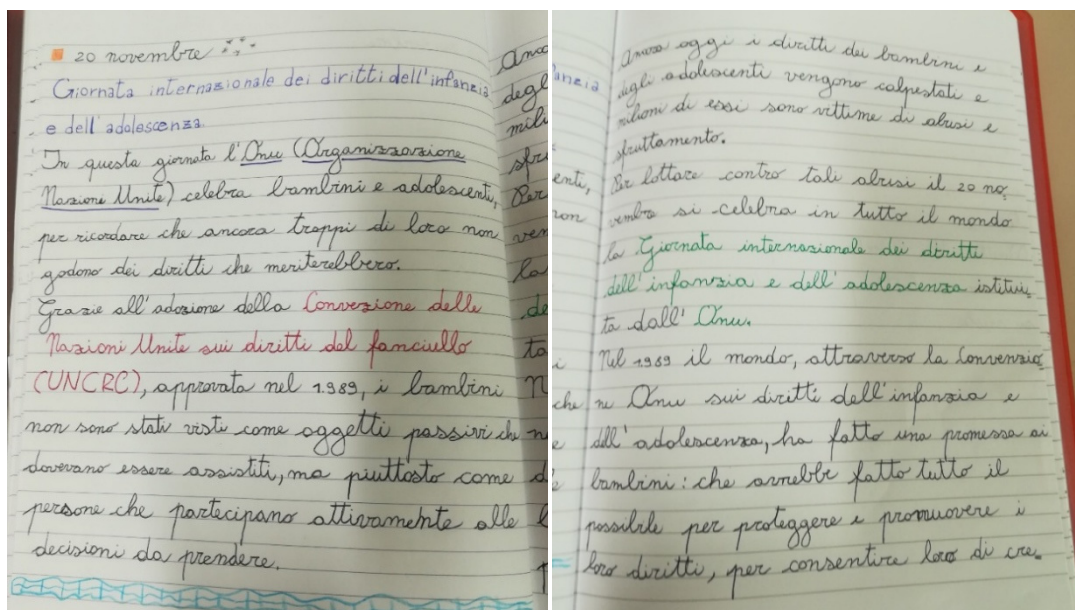 20 novembre
Giornata internazionale dei diritti dell'infanzia
e dell'adolescenza
In questa giornata l'Onu (Organizzazione
Nazioni Unite) celebra bambini e adolescenti,
per ricordare che ancora troppi di loro non
godono dei diritti che meriterebbero.
Grazie all'adozione della Convezione delle
Nazioni Unite sui diritti del fanciullo
(UNCRC), approvata nel 1989, i bambini
non sono stati visti come oggetti passivi che
dovevano essere assistiti, ma piuttosto come
persone che partecipano attivamente alle
decisioni da prendere.
Ancora oggi i diritti dei bambini e
degli adolescenti vengono calpestati e
milioni di essi sono vittime di abusi e
sfruttamento.
Per lottare contro tali abusi il 20 no
vembre si celebra in tutto il mondo
la Giornata internazionale dei diritti
dell'infanzia e dell'adolescenza istitui
ta dall'Onu.
Nel 1989 il mondo, attraverso la Convenzio
ne Onu sui diritti dell'infanzia e
dell'adolescenza, ha fatto una promessa ai
bambini: che avrebbe fatto tutto il
possibile per proteggere e promuovere i
loro diritti, per consentire loro di cre